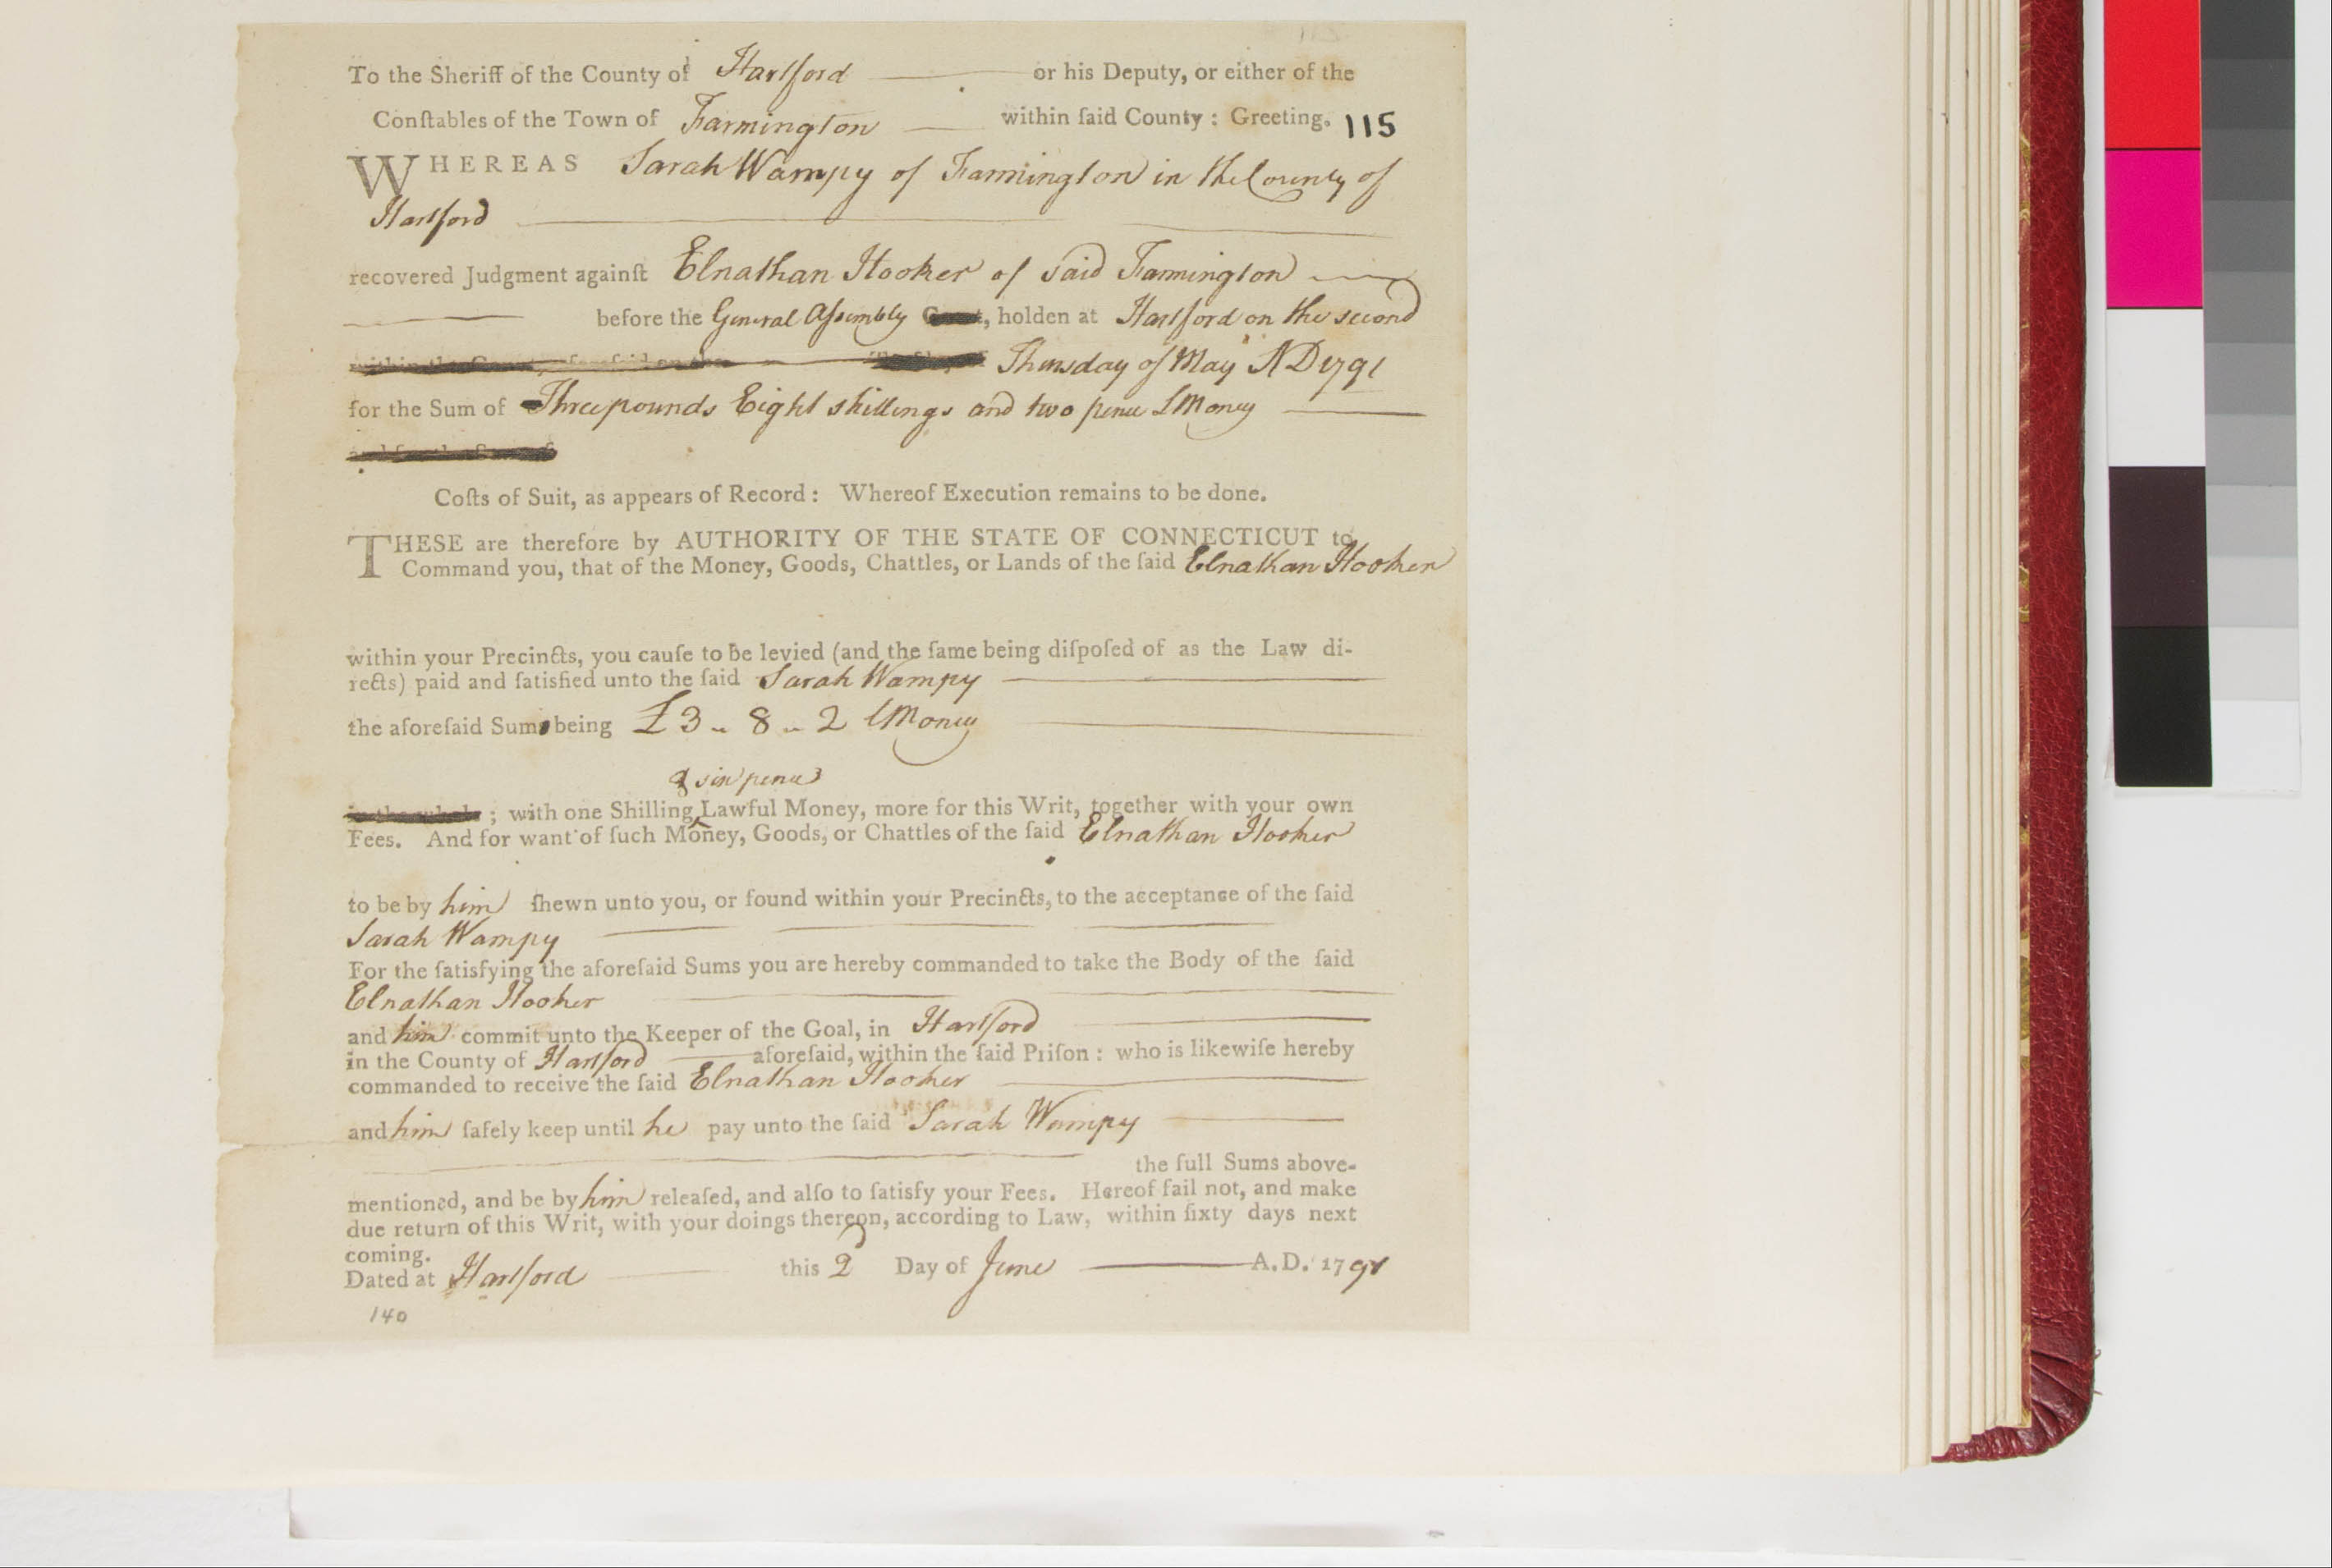 To the Sheriff of the County of Hartford or his Deputy, or either of the
Conſtables of the Town of Farmington within ſaid County : Greeting. 115
WHEREAS Sarah Wampy of Farmington in the County of
Hartford
recovered Judgment againſt Elnathan Hooker of said Farmington
before the General Aſsembly Court, holden at Hartford on the second
within the County aforeſaid on the Thursday of May AD 1791
for the Sum of Three pounds Eight shillings and two pence LMoney
and for the Sum of
Coſts of Suit, as appears of Record : Whereof Execution remains to be done.
THESE are therefore by AUTHORITY OF THE STATE OF CONNECTICUT to
Command you, that of the Money, Goods, Chattles, or Lands of the ſaid Elnathan Hooker
within your Precincts, you cauſe to be levied (and the ſame being diſpoſed of as the Law di-
rects) paid and ſatisfied unto the ſaid Sarah Wampy
the aforeſaid Sum being £3 " 8 " 2 LMoney
& six pence
in the whole ; with one Shilling ‸ Lawful Money, more for this Writ, together with your own
Fees. And for want of ſuch Money, Goods, or Chattles of the ſaid Elnathan Hooker
to be by him ſhewn unto you, or found within your Precincts, to the acceptance of the ſaid
Sarah Wampy
For the ſatisfying the aforeſaid Sums you are hereby commanded to take the Body of the ſaid
Elnathan Hooker
and him commit unto the Keeper of the Goal, in Hartford
in the County of Hartford aforeſaid, within the ſaid Priſon : who is likewiſe hereby
commanded to receive the ſaid Elnathan Hooker
and him ſafely keep until he pay unto the ſaid Sarah Wampy
the full Sums above-
mentioned, and be by him releaſed, and alſo to ſatisfy your Fees. Hereof fail not, and make
due return of this Writ, with your doings thereon, according to Law, within ſixty days next
coming.
Dated at Hartford this 2d Day of June A.D. 1791
140